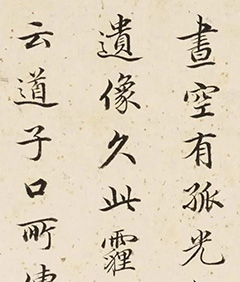 晝空有孤光
遺像久此霾
云道子口所傳